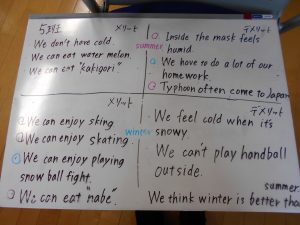 5班 メリット
We don't have cold.
We can eat water melon.
We can eat "kakigori."
summer
デメリット
Inside the mask feels
humid.
We have to do a lot of our
homework.
Typhoon often come to Japan
メリット
We can enjoy skiing.
We can enjoy skating.
We can enjoy playing
snow ball fight.
We can eat "nabe".
winter
デメリット
We feel cold when it's
snowy.
We can't play handball
outside.
summer
We think winter is better tha